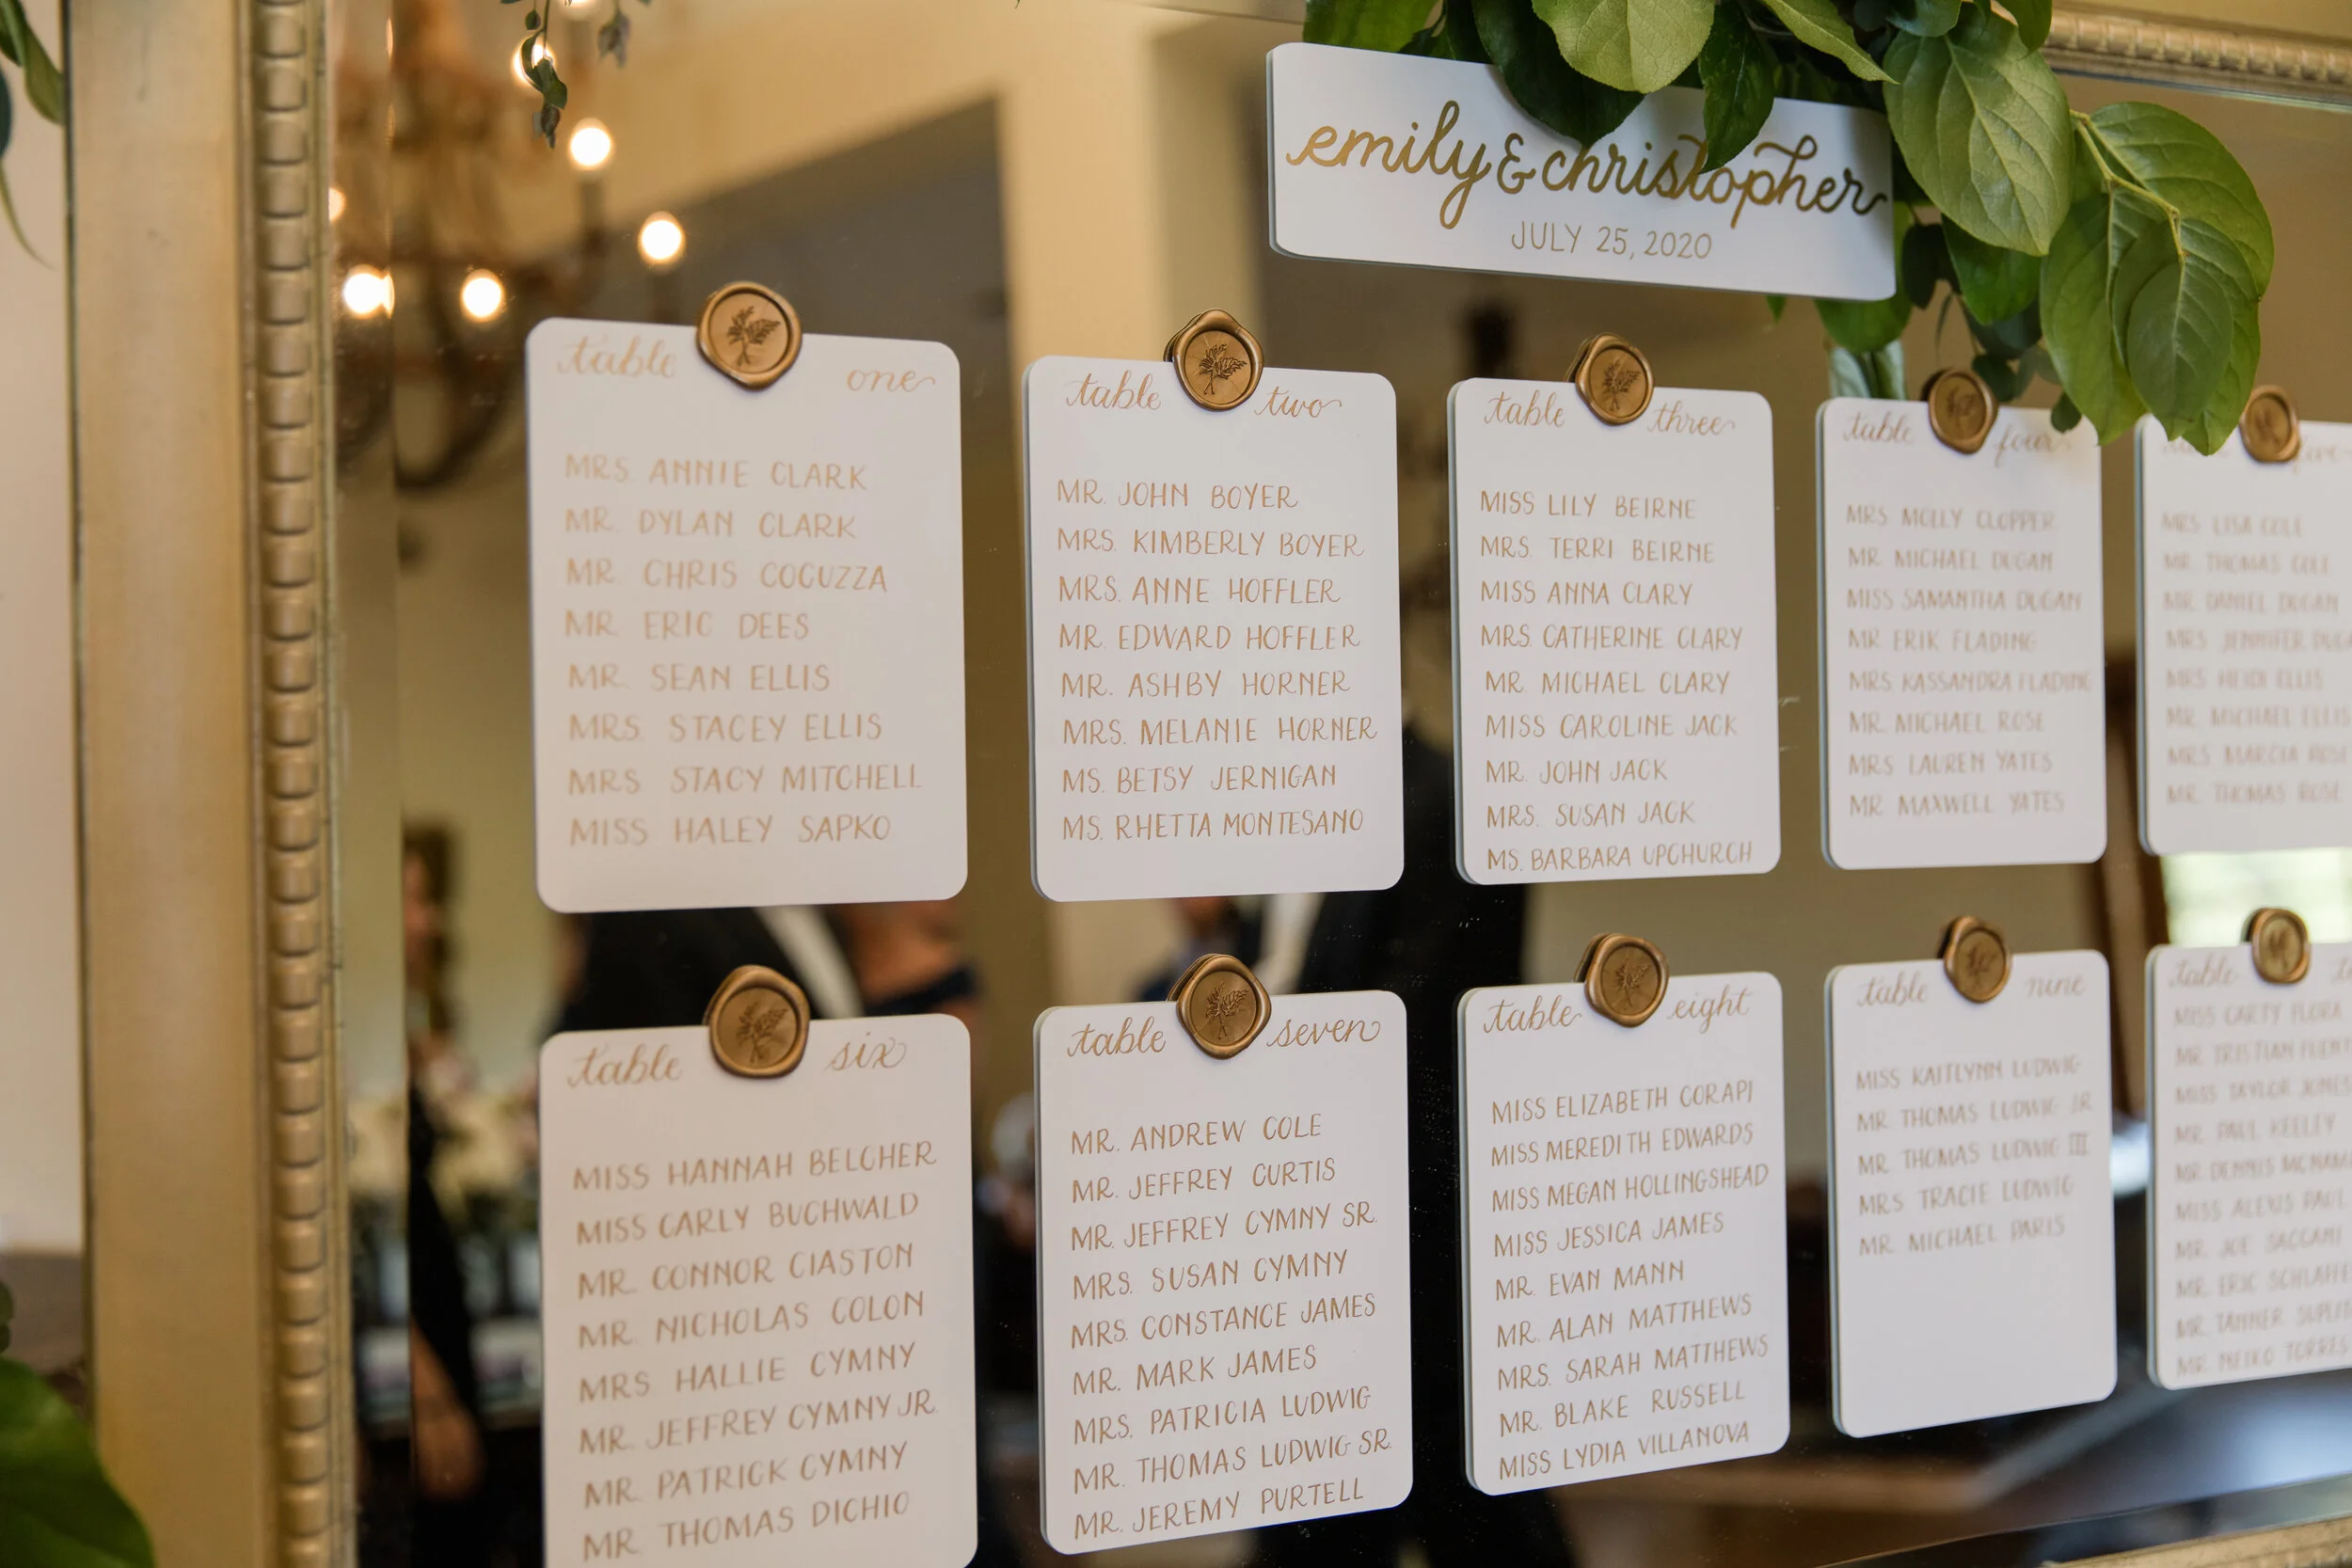 emily & christopher
JULY 25, 2020
table one
MRS. ANNIE CLARK
MR. DYLAN CLARK
MR. CHRIS COCUZZA
MR. ERIC DEES
MR. SEAN ELLIS
MRS. STACEY ELLIS
MRS. STACY MITCHELL
MISS HALEY SAPKO
table two
MR. JOHN BOYER
MRS. KIMBERLY BOYER
MRS. ANNE HOFFLER
MR. EDWARD HOFFLER
MR. ASHBY HORNER
MRS. MELANIE HORNER
MS. BETSY JERNIGAN
MS. RHETTA MONTESANO
table three
MISS LILY BEIRNE
MRS. TERRI BEIRNE
MISS ANNA CLARY
MRS. CATHERINE CLARY
MR. MICHAEL CLARY
MISS CAROLINE JACK
MR. JOHN JACK
MRS. SUSAN JACK
MS. BARBARA UPCHURCH
table four
MRS MOLLY CLOPPER
MR MICHAEL DUGAN
MISS SAMANTHA DUGAN
MR ERIK FLADING
MRS. KASSANDRA FLADING
MR. MICHAEL ROSE
MRS LAUREN YATES
MR. MAXWELL YATES
MRS LISA COLE
MR. THOMAS COLE
MR DANIEL DUGAN
MRS JENNIFER
MRS HEIDI ELLIS
MR. MICHAEL ELLIS
MRS MARCIA ROSE
MR. THOMAS ROSE
table six
MISS HANNAH BELCHER
MISS CARLY BUCHWALD
MR. CONNOR CIASTON
MR. NICHOLAS COLON
MRS HALLIE CYMNY
MR. JEFFREY CYMNY JR.
MR. PATRICK CYMNY
MR. THOMAS DICHIO
table seven
MR. ANDREW COLE
MR. JEFFREY CURTIS
MR. JEFFREY CYMNY SR.
MRS. SUSAN CYMNY
MRS. CONSTANCE JAMES
MR. MARK JAMES
MRS. PATRICIA LUDWIG
MR. THOMAS LUDWIG SR.
MR. JEREMY PURTELL
table eight
MISS ELIZABETH CORAPI
MISS MEREDITH EDWARDS
MISS MEGAN HOLLINGSHEAD
MISS JESSICA JAMES
MR. EVAN MANN
MR. ALAN MATTHEWS
MRS. SARAH MATTHEWS
MR. BLAKE RUSSELL
MISS LYDIA VILLANOVA
table nine
MISS KAITLYNN LUDWIG
MR. THOMAS LUDWIG JR
MR. THOMAS LUDWIG III
MRS TRACIE LUDWIG
MR. MICHAEL PARIS
table
MISS CARTY FLORA
MR. TRISTIAN
MISS TAYLOR
MR. PAUL KEELEY
MR. DENNIS
MISS ALEXIS PAUL
MR. JOE SACCANI
MR. ERIC
MR. TANNER
MR. TORRES